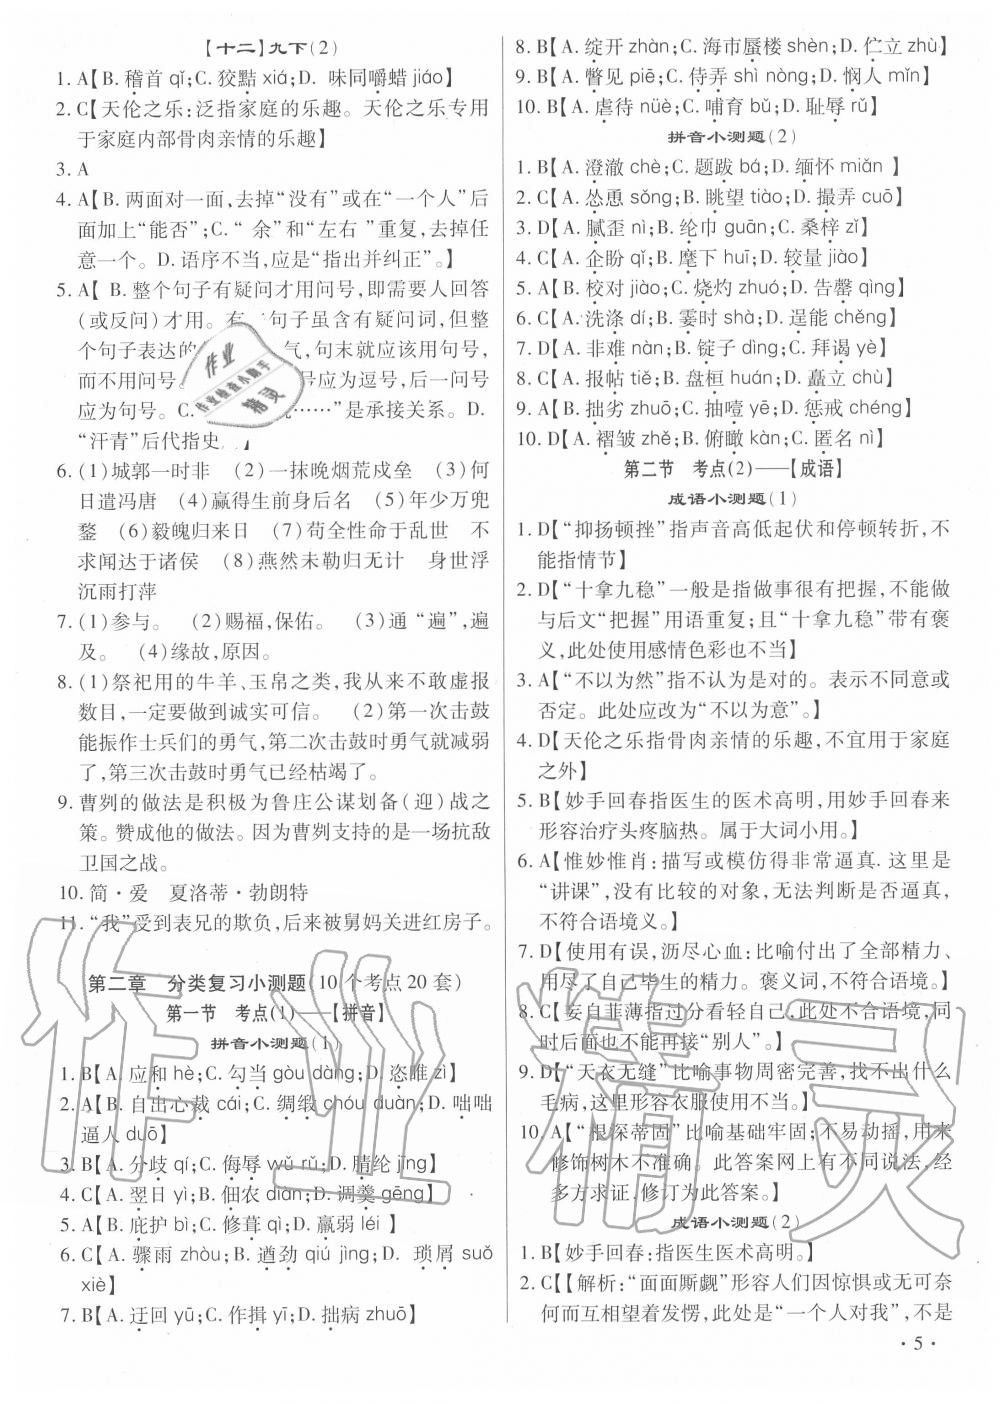 【十二】九下(2)
1. A【B. 稽首 qǐ;C. 狡黠 xiá;D. 味同嚼蜡 jiáo】
2. C【天伦之乐:泛指家庭的乐趣。天伦之乐专用
于家庭内部骨肉亲情的乐趣】
3. A
4. A【B. 两面对一面,去掉“没有”或在“一个人”后
面加上“能否”;C.“ 余”和“左右 ”重复,去掉任
意一个。D. 语序不当,应是“指出并纠正”。】
5. A【 B. 整个句子有疑问才用问号,即需要人回答
(或反问)才用。有 句子虽含有疑问词,但整
个句子表达的 气,句末就应该用句号,
而不用问号。 号应为逗号,后一问号
应为句号。C. ……”是承接关系。D.
“汗青”后代指史 】
6. (1)城郭一时非 (2)一抹晚烟荒戍垒 (3)何
日遣冯唐 (4)赢得生前身后名 (5)年少万兜
鍪 (6)毅魄归来日 (7)苟全性命于乱世 不
求闻达于诸侯 (8)燕然未勒归无计 身世浮
沉雨打萍
7. (1)参与。 (2)赐福,保佑。 (3)通“遍”,遍
及。 (4)缘故,原因。
8. (1)祭祀用的牛羊、玉帛之类,我从来不敢虚报
数目,一定要做到诚实可信。 (2)第一次击鼓
能振作士兵们的勇气,第二次击鼓时勇气就减弱
了,第三次击鼓时勇气已经枯竭了。
9. 曹刿的做法是积极为鲁庄公谋划备(迎)战之
策。赞成他的做法。因为曹刿支持的是一场抗敌
卫国之战。
10. 简·爱 夏洛蒂·勃朗特
11. “我”受到表兄的欺负,后来被舅妈关进红房子。
第二章 分类复习小测题(10个考点20套)
第一节 考点(1)——【拼音】
拼音小测题(1)
1. B【A. 应和 hè;C. 勾当 gòu dàng;D. 恣睢 zì】
2. A【B. 自出心裁 cái;C. 绸缎 chóu duàn;D. 咄咄
逼人 duō】
3. B【A. 分歧 qí;C. 侮辱 wǔ rǔ;D. 腈纶 jīng】
4. C【A. 翌日 yì;B. 佃农 diàn;D. 调羹 gēng】
5. A【B. 庇护 bì;C. 修葺 qì;D. 羸弱 léi 】
6. C【A. 骤雨 zhòu;B. 遒劲 qiú jìng;D. 琐屑 suǒ
xiè】
7. B【A. 迂回 yū;C. 作揖 yī;D. 拙病 zhuō】
8. B【A. 绽开 zhàn;C. 海市蜃楼 shèn;D. 伫立 zhù】
9. B【A. 瞥见 piē;C. 侍弄 shì nòng;D. 悯人 mǐn】
10. B【A. 虐待 nüè;C. 哺育 bǔ;D. 耻辱 rǔ】
拼音小测题(2)
1. B【A. 澄澈 chè;C. 题跋 bá;D. 缅怀 miǎn 】
2. C【A. 怂恿 sǒng;B. 眺望 tiào;D. 撮弄 cuō】
3. D【A. 腻歪 nì;B. 纶巾 guān;C. 桑梓 zǐ】
4. C【A. 企盼 qǐ;B. 麾下 huī;D. 较量 jiào】
5. A【B. 校对 jiào;C. 烧灼 zhuó;D. 告罄 qìng】
6. C【A. 洗涤 dí;B. 霎时 shà;D. 逞能 chěng】
7. D【A. 非难 nàn;B. 锭子 dìng;C. 拜谒 yè】
8. C【A. 报帖 tiě;B. 盘桓 huán;D. 矗立 chù】
9. A【B. 拙劣 zhuō;C. 抽噎 yē;D. 惩戒 chéng】
10. D【A. 褶皱 zhě;B. 俯瞰 kàn;C. 匿名 nì】
第二节 考点(2)——【成语】
成语小测题(1)
1. D【“抑扬顿挫”指声音高低起伏和停顿转折,不
能指情节】
2. D【“十拿九稳”一般是指做事很有把握,不能做
与后文“把握”用语重复;且“十拿九稳”带有褒
义,此处使用感情色彩也不当】
3. A【“不以为然”指不认为是对的。表示不同意或
否定。此处应改为“不以为意”。】
4. D【天伦之乐指骨肉亲情的乐趣,不宜用于家庭
之外】
5. B【妙手回春指医生的医术高明,用妙手回春来
形容治疗头疼脑热。属于大词小用。】
6. A【惟妙惟肖:描写或模仿得非常逼真. 这里是
“讲课”,没有比较的对象,无法判断是否逼真,
不符合语境义。】
7. D【使用有误,沥尽心血:比喻付出了全部精力、
用尽了自己毕生的精力。褒义词,不符合语境。】
8. C【妄自菲薄指过分看轻自己,此处不合语境,同
时后面也不能再接“别人”。】
9. D【“天衣无缝”比喻事物周密完善,找不出什么
毛病,这里形容衣服使用不当。】
10. A【“根深蒂固”比喻基础牢固;不易动摇,用来
修饰树木不准确。此答案网上有不同说法,经
多方求证,修订为此答案。】
成语小测题(2)
1. B【妙手回春:指医生医术高明。】
2. C【【解析:“面面厮觑”形容人们因惊惧或无可奈
何而互相望着发愣,此处是“一个人对我”,不是
· 5 ·
作业
作业检查小助手
精灵
作业精灵